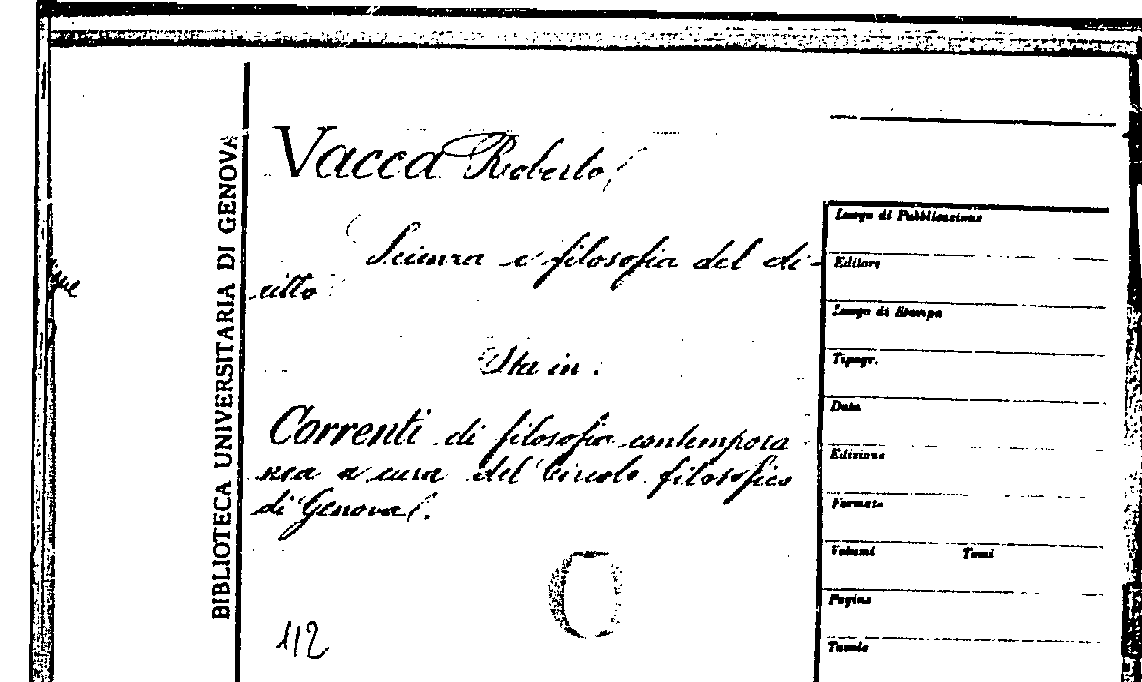 BIBLIOTECA UNIVERSITARIA DI GENOVA
Vacca Roberto
Scienza e filosofia del di-
ritto
Sta in:
Correnti di filosofia contempora
nea a cura del Circolo filosofico
di Genova.
C
112
Luogo di Pubblicazione
Editore
Luogo di Stampa
Tipogr.
Data
Edizione
Formato
Volumi Tomi
Pagine
Tavole